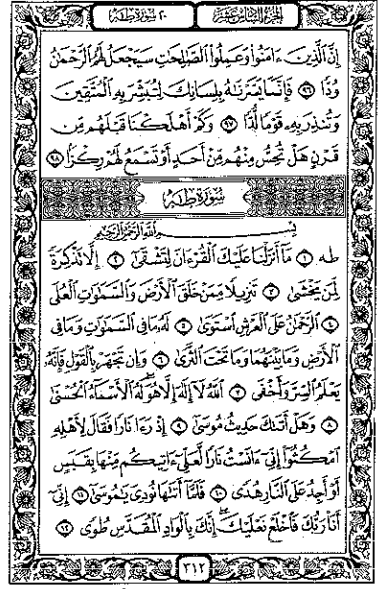 الجزء السادس عشر
٢٠ سورة طه
إِنَّ الَّذِينَ ءَامَنُوا وَعَمِلُوا الصَّالِحَاتِ سَيَجْعَلُ لَهُمُ الرَّحْمَٰنُ
وُدًّا ٩٦ فَإِنَّمَا يَسَّرْنَاهُ بِلِسَانِكَ لِتُبَشِّرَ بِهِ الْمُتَّقِينَ
وَتُنذِرَ بِهِ قَوْمًا لُّدًّا ٩٧ وَكَمْ أَهْلَكْنَا قَبْلَهُم مِّن
قَرْنٍ هَلْ تُحِسُّ مِنْهُم مِّنْ أَحَدٍ أَوْ تَسْمَعُ لَهُمْ رِكْزًا ٩٨
سُورَةُ طه
بِسْمِ اللَّهِ الرَّحْمَٰنِ الرَّحِيمِ
طه ١ مَا أَنزَلْنَا عَلَيْكَ الْقُرْءَانَ لِتَشْقَىٰ ٢ إِلَّا تَذْكِرَةً
لِّمَن يَخْشَىٰ ٣ تَنزِيلًا مِّمَّنْ خَلَقَ الْأَرْضَ وَالسَّمَاوَاتِ الْعُلَى
٤ الرَّحْمَٰنُ عَلَى الْعَرْشِ اسْتَوَىٰ ٥ لَهُ مَا فِي السَّمَاوَاتِ وَمَا فِي
الْأَرْضِ وَمَا بَيْنَهُمَا وَمَا تَحْتَ الثَّرَىٰ ٦ وَإِن تَجْهَرْ بِالْقَوْلِ فَإِنَّهُ
يَعْلَمُ السِّرَّ وَأَخْفَى ٧ اللَّهُ لَا إِلَٰهَ إِلَّا هُوَ لَهُ الْأَسْمَاءُ الْحُسْنَىٰ
٨ وَهَلْ أَتَاكَ حَدِيثُ مُوسَىٰ ٩ إِذْ رَءَا نَارًا فَقَالَ لِأَهْلِهِ
امْكُثُوا إِنِّي ءَانَسْتُ نَارًا لَّعَلِّي ءَاتِيكُم مِّنْهَا بِقَبَسٍ
أَوْ أَجِدُ عَلَى النَّارِ هُدًى ١٠ فَلَمَّا أَتَاهَا نُودِيَ يَامُوسَىٰ ١١ إِنِّي
أَنَا رَبُّكَ فَاخْلَعْ نَعْلَيْكَ إِنَّكَ بِالْوَادِ الْمُقَدَّسِ طُوًى ١٢
٣١٢